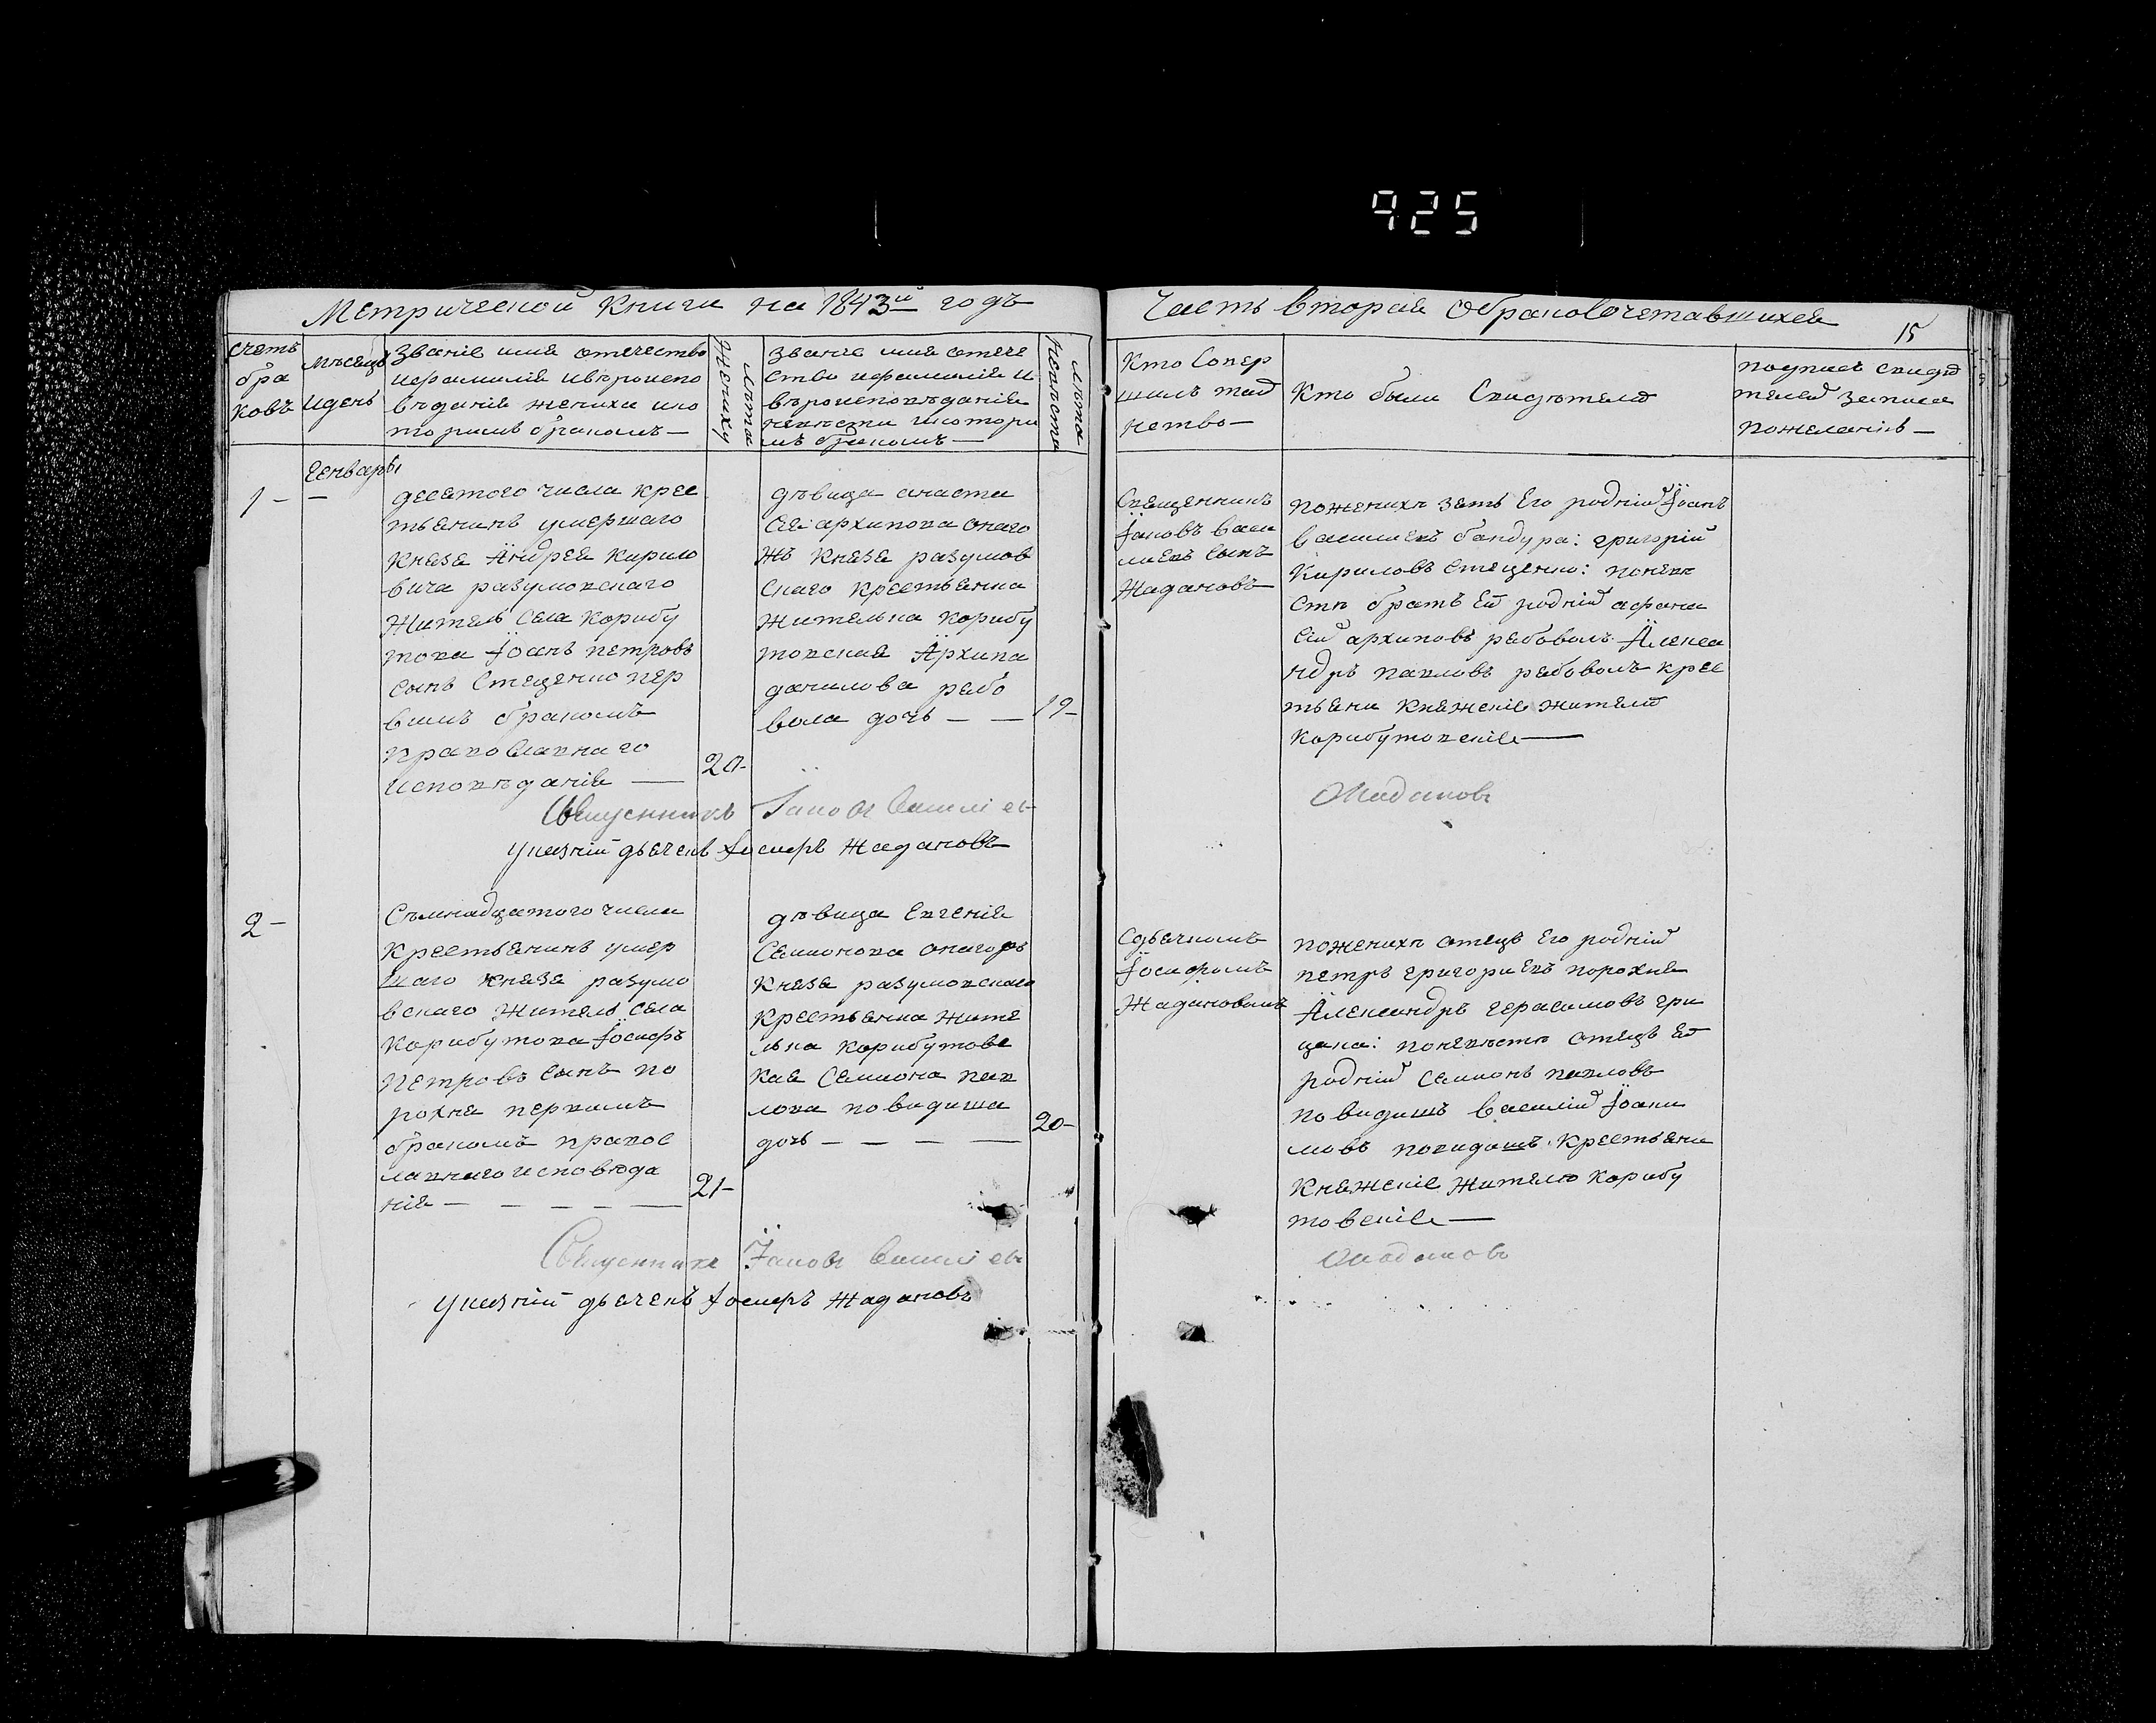 925
Метрической Книги на 1843й годъ
Часть вторая обраковочетавшихся
15
Счетъ
бра
ковъ
Мѣсяцъ
идень
Званіе имя отечество
ифамилія ивѣроиспо
вѣданія жениха ико
торимъ бракомъ —
Лѣта
Жениху
Званіе имя отече
ство ифамилія и
вѣроисповѣданія
невѣсти икотори
мъ бракомъ —
Лѣта
Невѣсти
Кто Совер
шилъ таи
нство —
Кто были Свидѣтели
подписъ свидѣ
телей записи
пожеланію —
1 -
Генварь
-
десятого числа крес
тьянинъ умершаго
Князя Андрея Кирило
вича разумовскаго
Житель Села Корибу
това Іоанъ петровъ
Синъ Стеценко пер
вимъ бракомъ
православнаго
исповѣданія —
20-
дѣвица анаста
сія архипова онаго
жъ Князя разумов
скаго крестьянка
жителька корибу
товская Архипа
данилова рябо
вола дочь — —
19-
Священникъ
Іаковъ васи
лиевъ Синъ
Жадановъ —
поженихѣ зять Его родній Іоанъ
василиевъ бандура: григорій
Кириловъ Стеценко: поневѣ
стѣ братъ Ей родній афана
сій архиповъ рябоволъ Алекса
ндръ павловъ рябоволъ крес
тьяни княжскіе жители
корибутовскіе —
Священникъ Іаковъ Василіевъ
Жадановъ
указній дьячекъ Іосифъ Жадановъ
2 -
Съмнадцатого числа
крестьянинъ умер
шаго князя разумо
вскаго житель села
корибутова Іосифъ
Петровъ Синъ по
рохня первимъ
бракомъ правос
лавнаго исповѣда
нія — — — — —
21-
дѣвица Евгенія
Семионова онагожъ
князя разумовскаго
крестьянка жите
лька корибутовс
кая Семиона пав
лова повидиша
дочь — — — —
20-
Сдьячкомъ
Іосифомъ
Жадановимъ
поженихѣ отецъ Его родній
петръ григориевъ порохня
Александръ герасимовъ гри
цана: поневѣстѣ отецъ Ей
родній Семионъ павловъ
повидишъ василій Іоаки
мовъ повидишъ крестьяни
Княжскіе жители Корибу
товскіе —
Священникъ Іаковъ Василіевъ
Жадановъ
указній дьячекъ Іосифъ Жадановъ